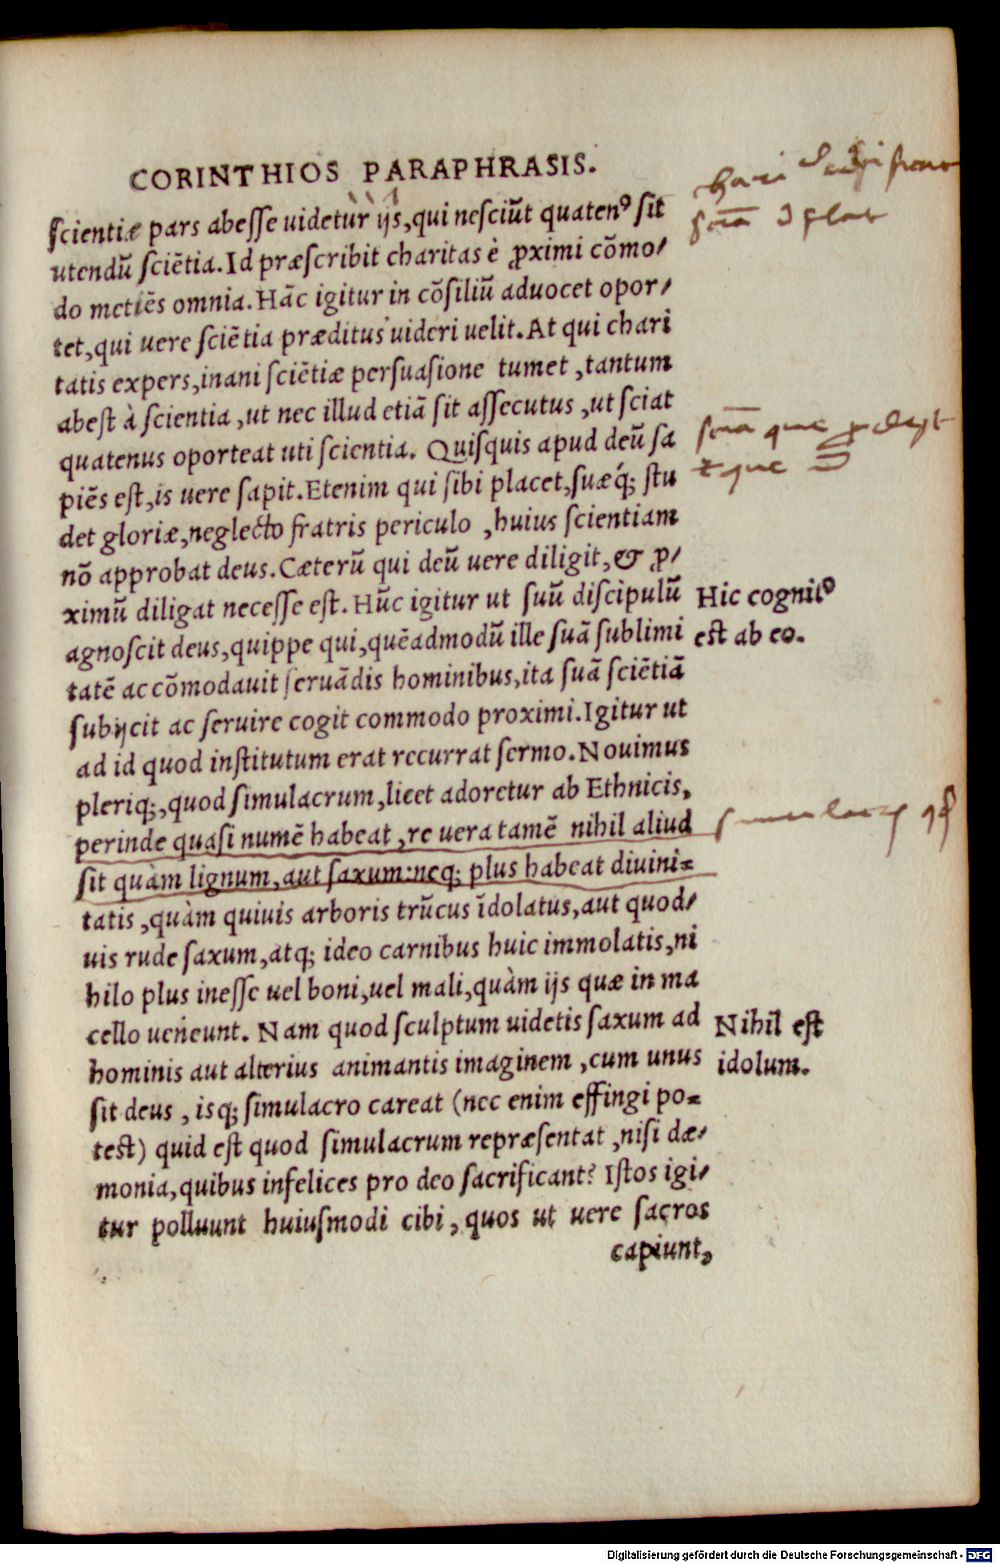 CORINTHIOS PARAPHRASIS.
ſcientiæ pars abeſſe uidetur ijs, qui neſciūt quatenꝰ ſit
utendū ſciētia. Id præſcribit charitas è ꝓximi cōmo/
do metiēs omnia. Hāc igitur in cōſiliū aduocet opor/
tet, qui uere ſciētia præditus uideri uelit. At qui chari
tatis expers, inani ſciētiæ perſuaſione tumet, tantum
abeſt à ſcientia, ut nec illud etiā ſit aſſecutus, ut ſciat
quatenus oporteat uti ſcientia. Quiſquis apud deū ſa
piēs eſt, is uere ſapit. Etenim qui ſibi placet, ſuæq́; ſtu
det gloriæ, neglecto fratris periculo, huius ſcientiam
nō approbat deus. Cæterū qui deū uere diligit, & ꝓ/
ximū diligat neceſſe eſt. Hūc igitur ut ſuū diſcipulū
Hic cognitꝰ
agnoſcit deus, quippe qui, quēadmodū ille ſuā ſublimi
eſt ab eo.
tatē accōmodauit ſeruādis hominibus, ita ſuā ſciētiā
ſubijcit ac ſeruire cogit commodo proximi. Igitur ut
ad id quod inſtitutum erat recurrat ſermo. Nouimus
pleriq;, quod ſimulacrum, licet adoretur ab Ethnicis,
perinde quaſi numē habeat, re uera tamē nihil aliud
ſit quàm lignum, aut ſaxum: neq; plus habeat diuini=
tatis, quàm quiuis arboris trūcus īdolatus, aut quod/
uis rude ſaxum, atq; ideo carnibus huic immolatis, ni
hilo plus ineſſe uel boni, uel mali, quàm ijs quæ in ma
cello ueneunt. Nam quod ſculptum uidetis ſaxum ad
Nihil eſt
hominis aut alterius animantis imaginem, cum unus
idolum.
ſit deus, isq; ſimulacro careat (nec enim effingi po=
test) quid eſt quod ſimulacrum repræſentat, niſi dæ/
monia, quibus infelices pro deo ſacrificant? Iſtos igi/
tur polluunt huiuſmodi cibi, quos ut uere ſacros
capiunt,
Digitalisierung gefördert durch die Deutsche Forschungsgemeinschaft - DFG